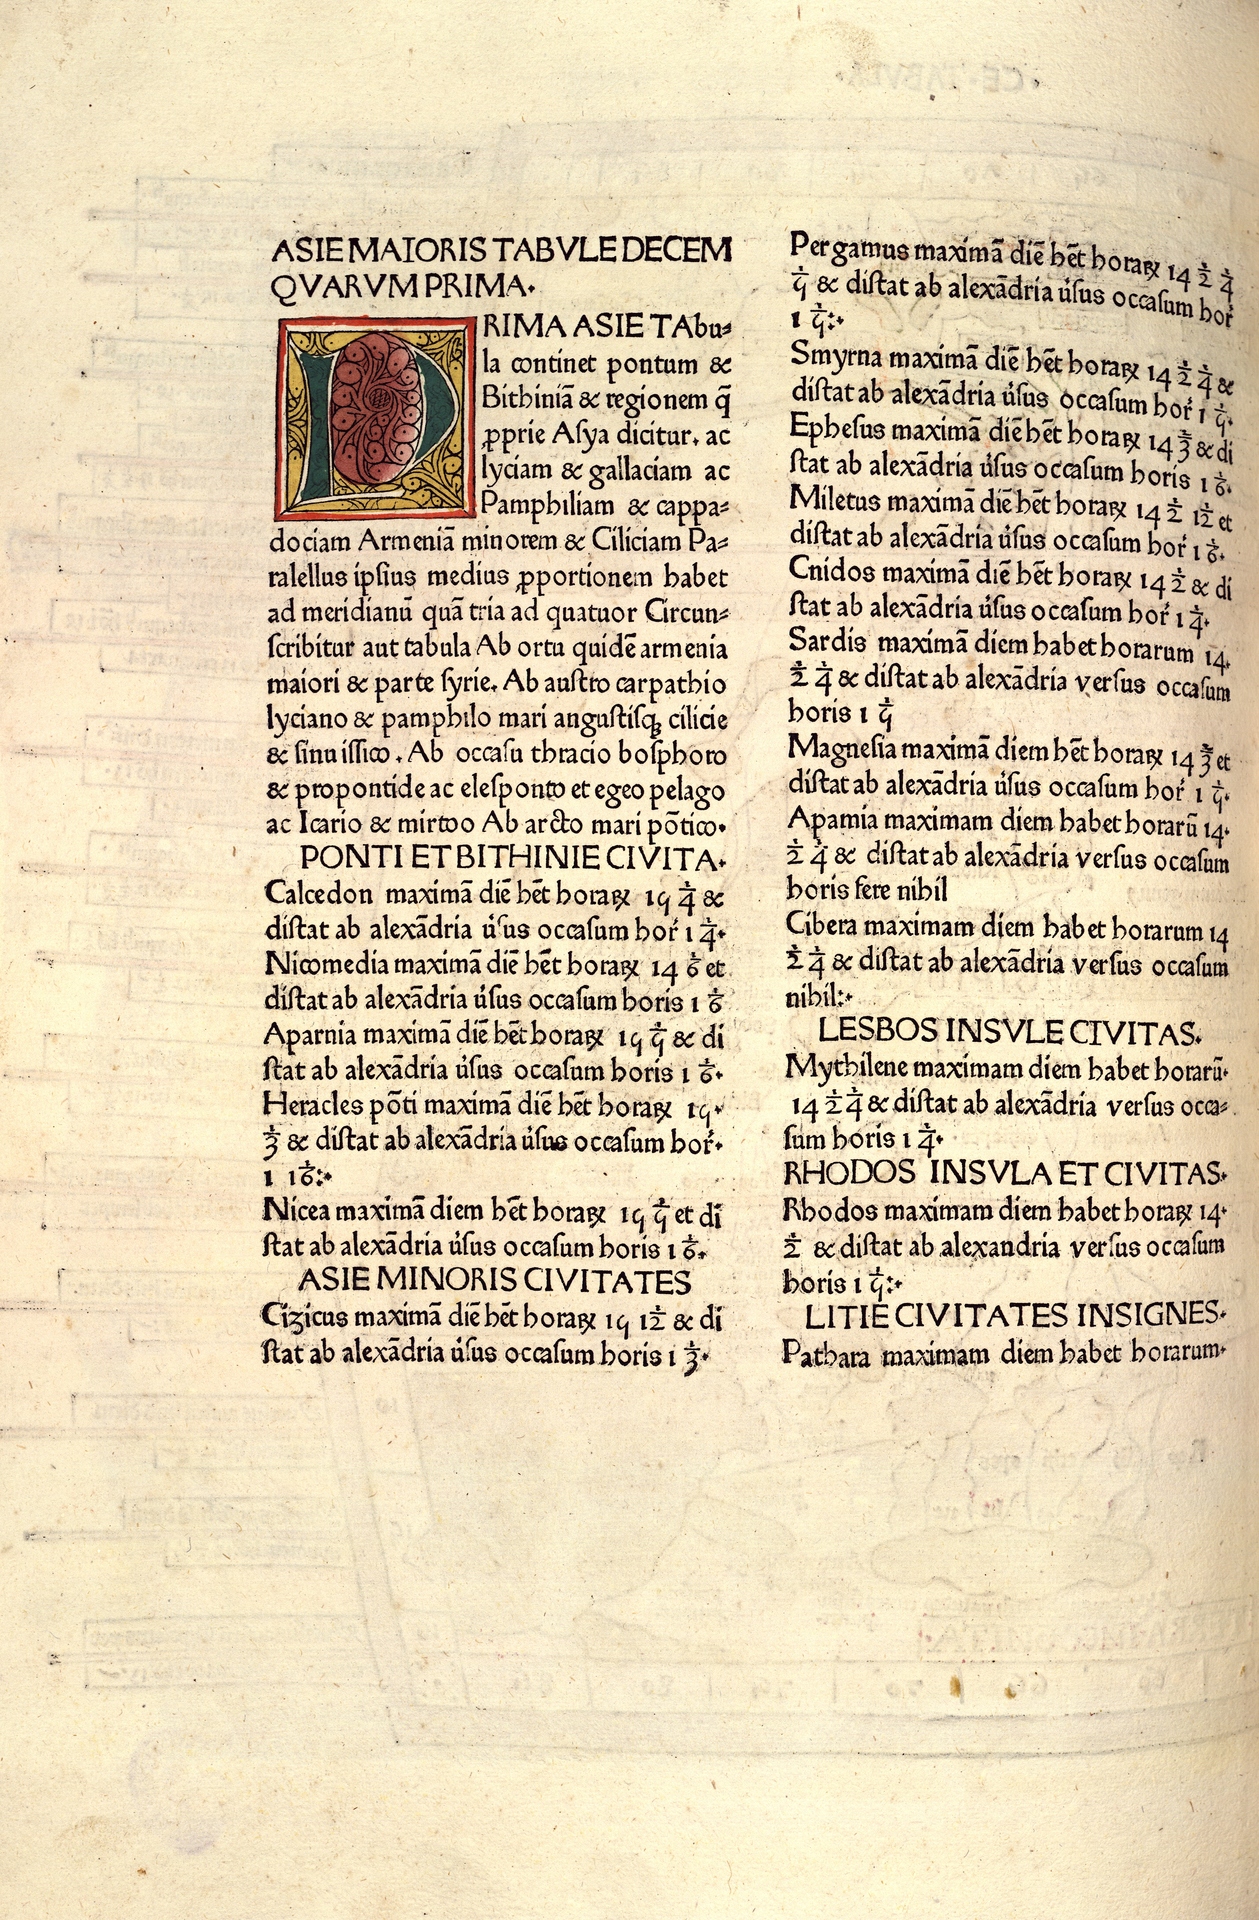 ASIE MAIORIS TABVLE DECEM
QVARVM PRIMA.
PRIMA ASIE TAbu⸗
la continet pontum &
Bithiniã & regionem q̃
ꝓprie Asya dicitur. ac
lyciam & gallaciam ac
Pamphiliam & cappa⸗
dociam Armeniã minorem & Ciliciam Pa⸗
ralellus ipsius medius ꝓportionem habet
ad meridianũ quã tria ad quatuor Circun⸗
scribitur aut tabula Ab ortu quidẽ armenia
maiori & parte syrie. Ab austro carpathio
lyciano & pamphilo mari angustisqꝫ cilicie
& sinu issico. Ab occasu thracio bosphoro
& propontide ac elesponto et egeo pelago
ac Icario & mirtoo Ab arcto mari põtico.
PONTI ET BITHINIE CIVITA.
Calcedon maximã diẽ hẽt horaꝝ 15 1/4 &
distat ab alexãdria ũsus occasum hor̃ 1 1/4.
Nicomedia maximã diẽ hẽt horaꝝ 14 1/6 et
distat ab alexãdria ũsus occasum horis 1 1/6
Aparnia maximã diẽ hẽt horaꝝ 15 1/5 & di
stat ab alexãdria ũsus occasum horis 1 1/6.
Heracles põti maximã diẽ hẽt horaꝝ 15.
1/3 & distat ab alexãdria ũsus occasum hor̃.
1 1/16:.
Nicea maximã diem hẽt horaꝝ 15 1/5 et di
stat ab alexãdria ũsus occasum horis 1 1/6.
ASIE MINORIS CIVITATES
Cizicus maximã diẽ hẽt horaꝝ 15 1/12 & di
stat ab alexãdria ũsus occasum horis 1 1/3.
Pergamus maximã diẽ hẽt horaꝝ 14 1/2 1/4
1/5 & distat ab alexãdria ũsus occasum hor̃
1 1/5:.
Smyrna maximã diẽ hẽt horaꝝ 14 1/2 1/4 &
distat ab alexãdria ũsus occasum hor̃ 1 1/5.
Ephesus maximã diẽ hẽt horaꝝ 14 2/3 & di
stat ab alexãdria ũsus occasum horis 1 1/6.
Miletus maximã diẽ hẽt horaꝝ 14 1/2 1/12 et
distat ab alexãdria ũsus occasum hor̃ 1 1/6.
Cnidos maximã diẽ hẽt horaꝝ 14 1/2 & di
stat ab alexãdria ũsus occasum hor̃ 1 1/4.
Sardis maximã diem habet horarum 14.
1/2 1/4 & distat ab alexãdria versus occasum
horis 1 1/5
Magnesia maximã diem hẽt horaꝝ 14 2/3 et
distat ab alexãdria ũsus occasum hor̃ 1 1/5.
Apamia maximam diem habet horarũ 14.
1/2 1/4 & distat ab alexãdria versus occasum
horis fere nihil
Cibera maximam diem habet horarum 14
1/2 1/4 & distat ab alexãdria versus occasum
nihil:.
LESBOS INSVLE CIVITAS.
Mythilene maximam diem habet horarũ.
14 1/2 1/4 & distat ab alexãdria versus occa⸗
sum horis 1 1/4.
RHODOS INSVLA ET CIVITAS.
Rhodos maximam diem habet horaꝝ 14.
1/2 & distat ab alexandria versus occasum
horis 1 1/5:.
LITIE CIVITATES INSIGNES.
Pathara maximam diem habet horarum.